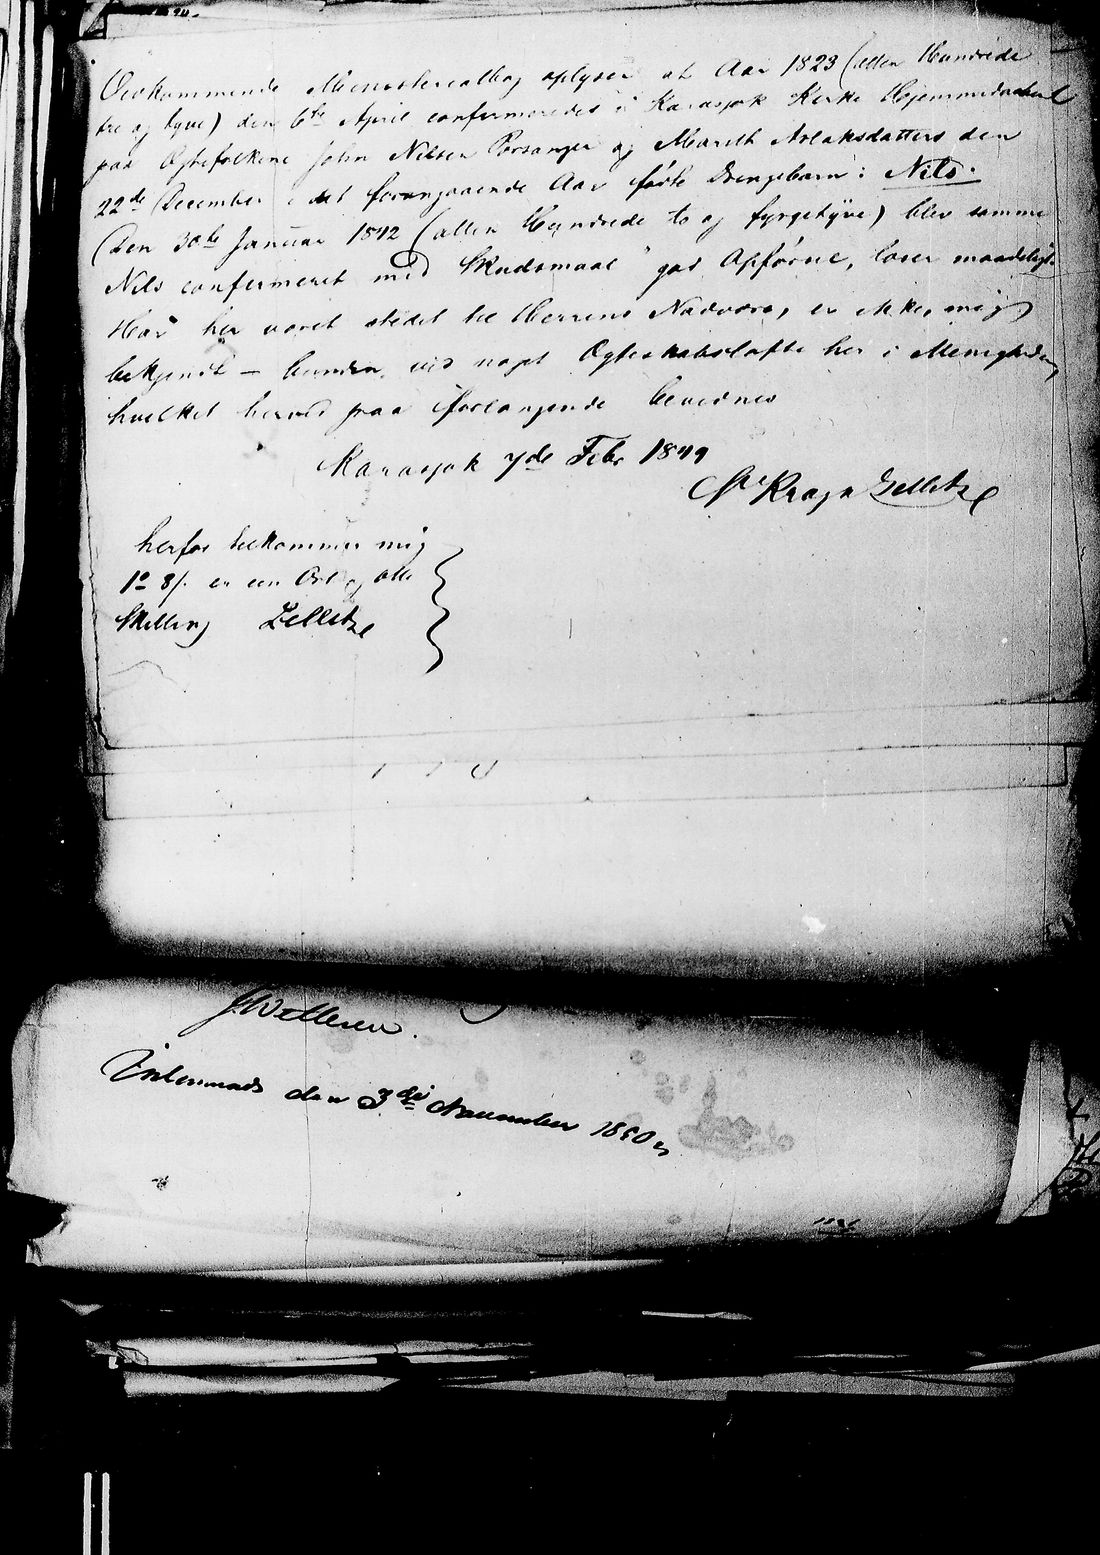 Vedkommende Ministerialbog oplyser at Aar 1823 (atten Hundrede
tre og tyve) den 6te April confirmeredes i Karasjok Kirke Hjemmedøbt
paa Ægtefolkene John Nilsen Porsanger og Mareth Aslaksdatters den
22de December i det foregaaende Aar fødte Drengebarn: Nils.
Den 30te Januar 1842 (atten Hundrede to og fyrgetyve) blev samme
Nils confirmeret med Skudsmaal "god Opførsel, læser maadeligt.
Har her været stedet til Herrens Nadvere, er ikke, mig
bekjendt – bunden ved noget Ægteskabsløfte her i Menigheden,
hvilket herved paa Forlangende bevidnes
Karasjok 7de Febr 1849
Kragh Zellitz
herfor tilkommer mig
1 8/ er een Ort og otte
Skilling Zellitz
den 3de November 1850